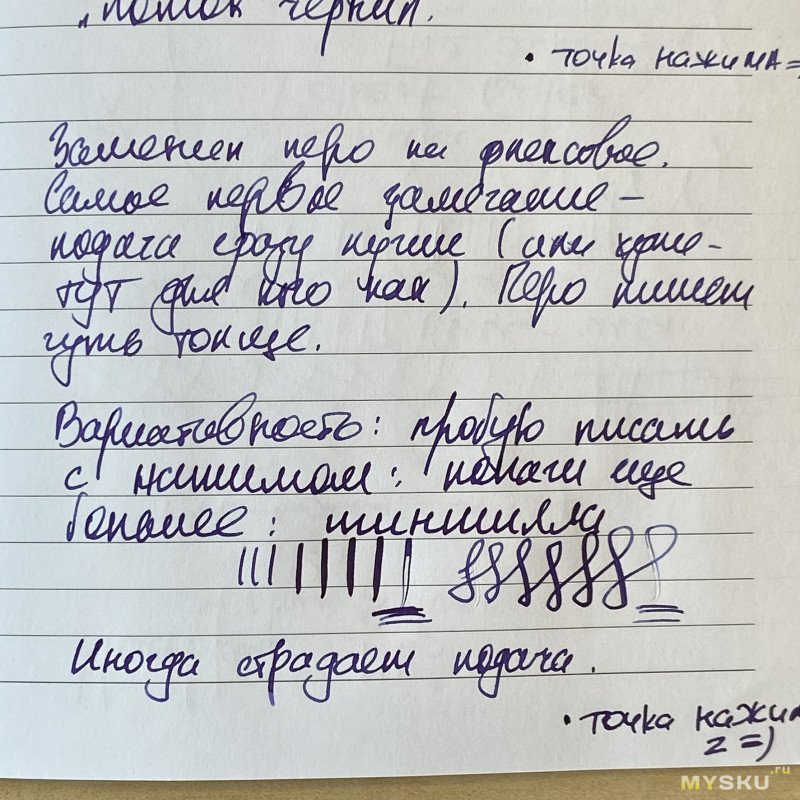 "поток чернил.
• точка нажима =)
Заменен перо на флексовое.
Самое первое замечание –
подача сразу лучше (или хуже –
тут для кого как). Перо пишет
чуть тоньше.
Вариативность: пробую писать
с нажимом: нажим еще
больше: шиншилла
Иногда страдает подача.
• точка нажим
2 =)
MYSKU.ru